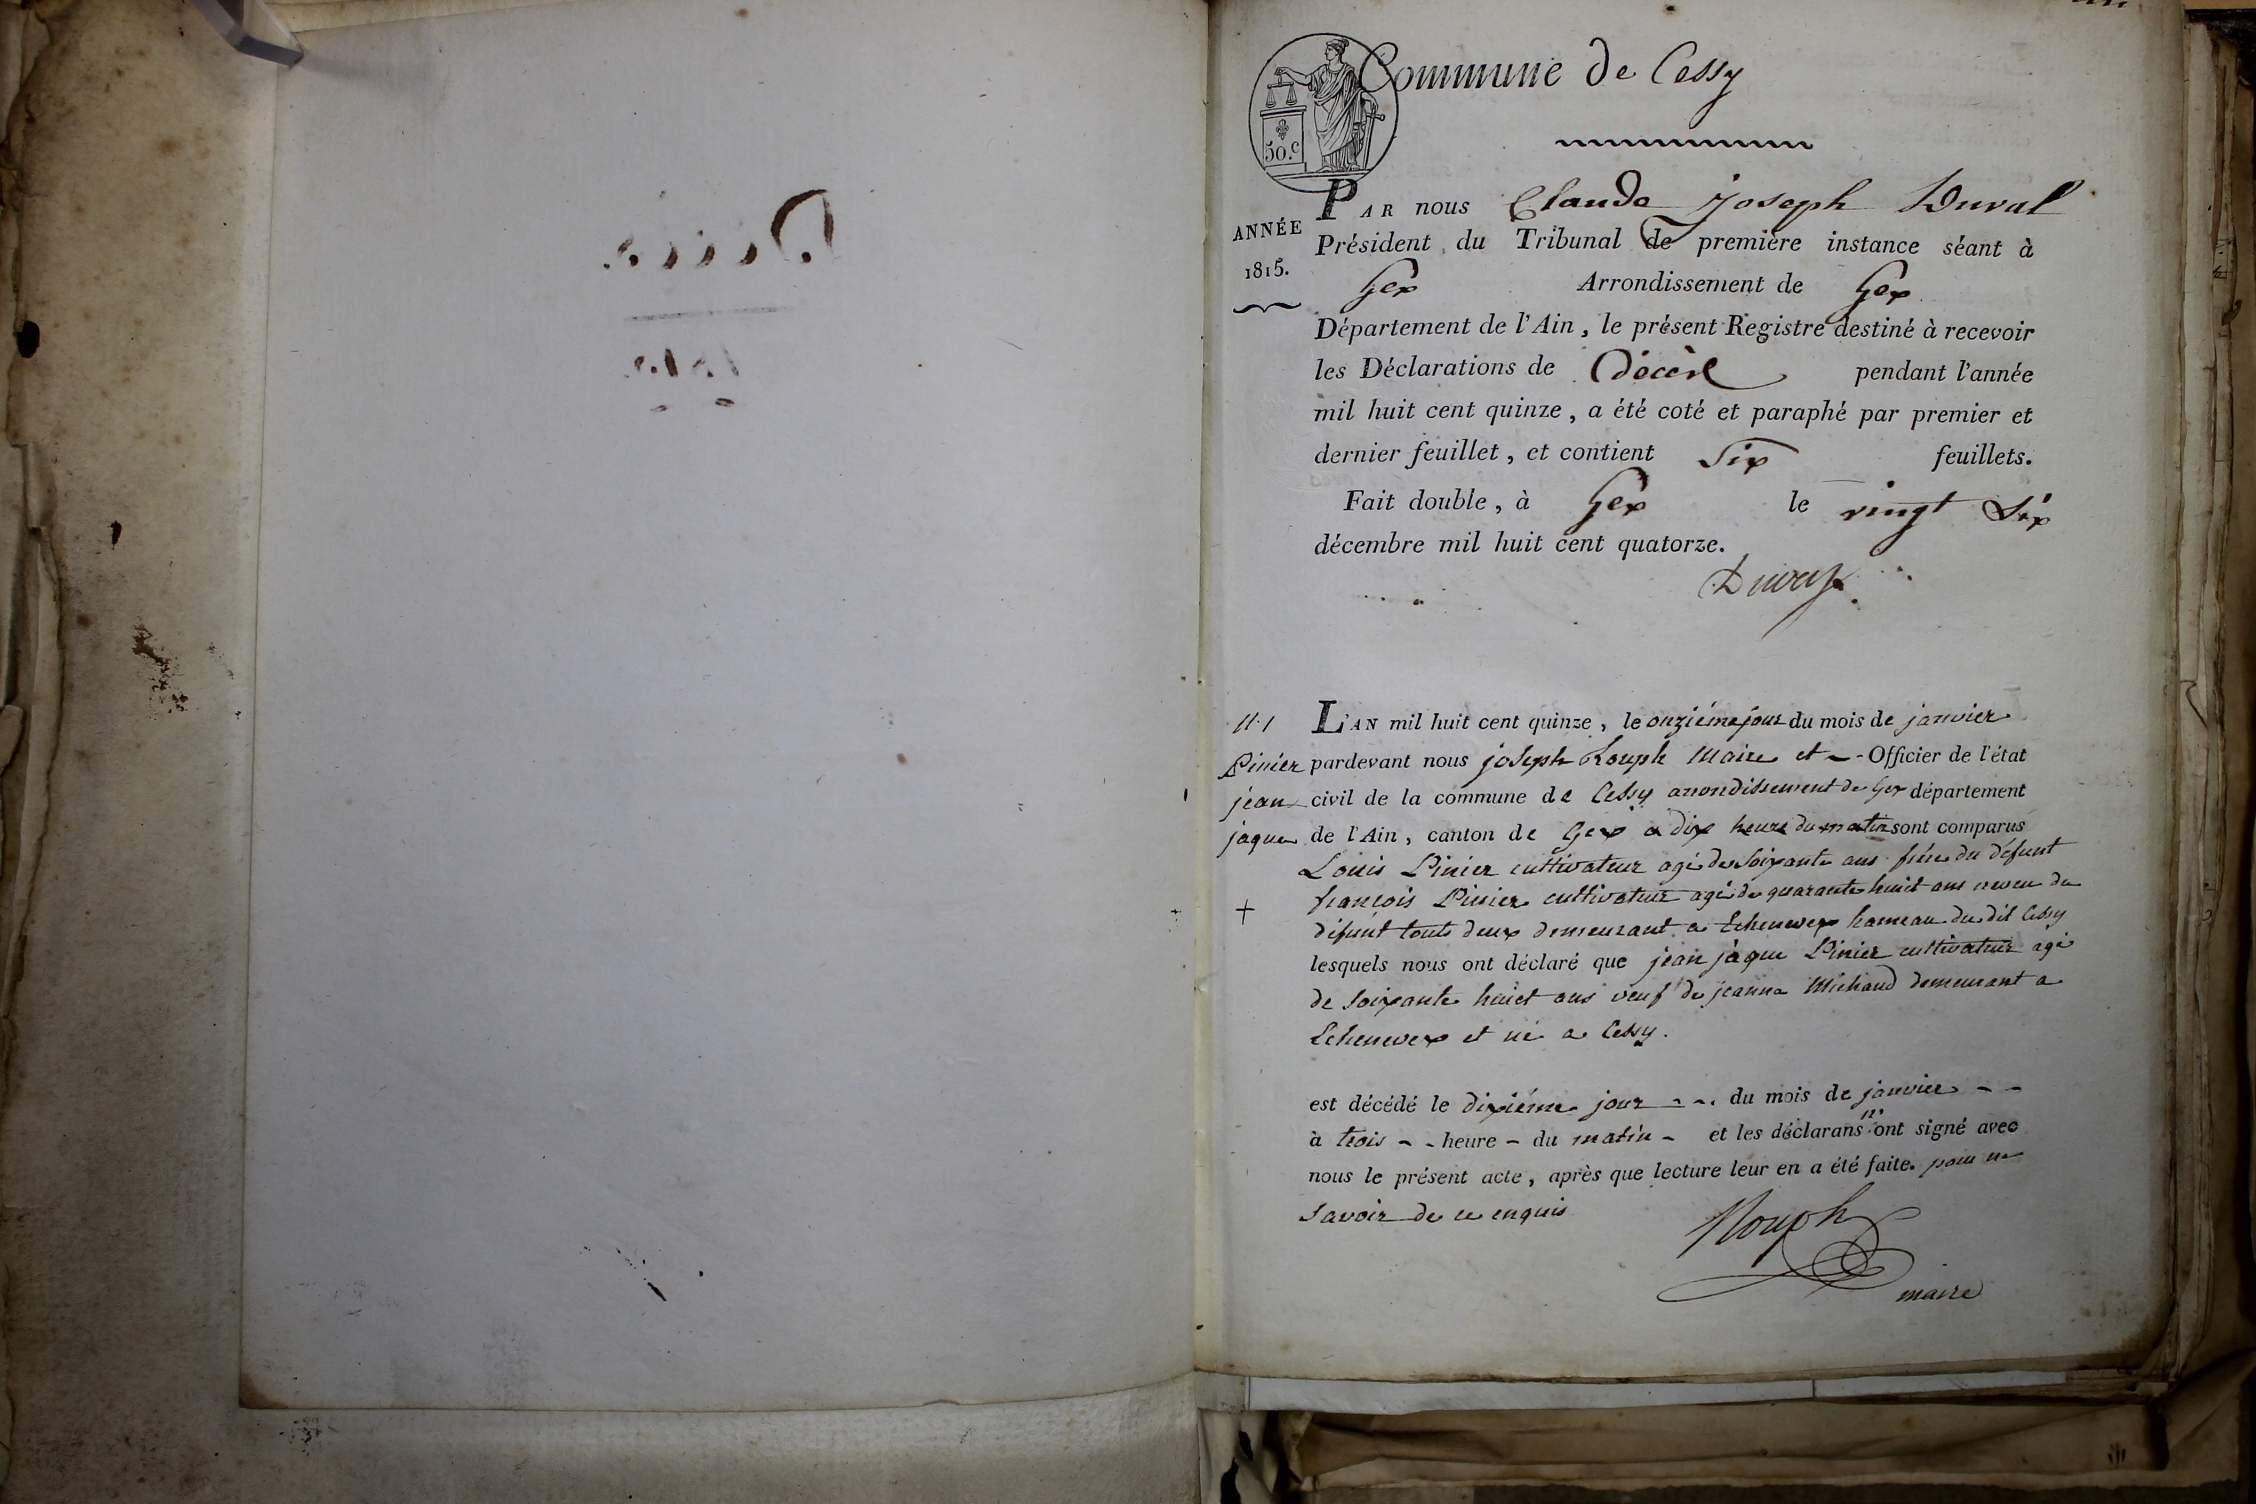 Commune de Cessy
50.c
PAR nous Claude Joseph Duval
ANNÉE
1815.
Président du Tribunal de première instance séant à
Gex Arrondissement de Gex
Département de l'Ain, le présent Registre destiné à recevoir
les Déclarations de Décès pendant l'année
mil huit cent quinze, a été coté et paraphé par premier et
dernier feuillet, et contient Six feuillets.
Fait double, à Gex le vingt Six
décembre mil huit cent quatorze.
Duval
N.1
Pinier
jean
jaque
+
L'AN mil huit cent quinze, le onziéme jour du mois de janvier
pardevant nous joseph Rouph Maire et - - Officier de l'état
civil de la commune de Cessy arrondissement de Gex département
de l'Ain, canton de Gex a dix heure du matin sont comparus
Louis Pinier cultivateur agé de Soixante ans frére du défunt
françois Pinier cultivateur agé de quarante huit ans neveu du
défunt touts deux demeurant a Echenevex hameau du dit Cessy
lesquels nous ont déclaré que jean jàque Pinier cultivateur agé
de soixante huict ans veuf de jeanne Michaud demeurant a
Echenevex et né a Cessy.
est décédé le dixiéme jour - - . du mois de janvier - -
à trois - - heure - du matin - et les déclarans n' ont signé avec
nous le présent acte, après que lecture leur en a été faite. pour ne
savoir de ce enquis
Rouph
maire